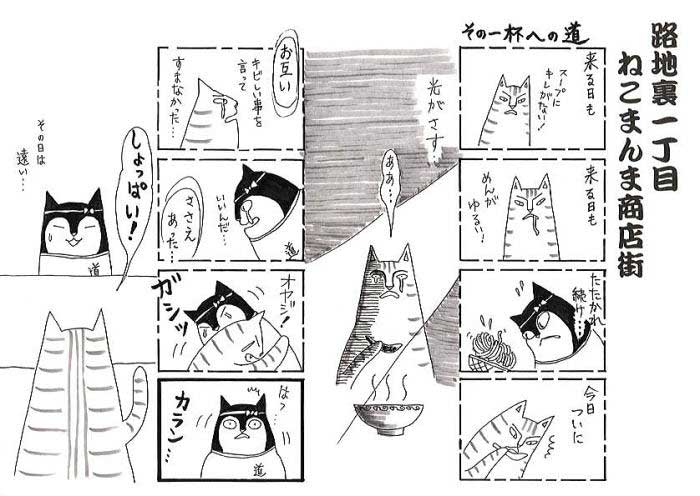 路地裏一丁目
ねこまんま商店街
その一杯への道
来る日も
スープに
キレがない!
来る日も
めんが
ゆるい!
たたかれ
続け…
今日
ついに
光がさす
ああ…
お互い
キビしい事を
言って
すまなかった…
いいんだ…
ささえ
あった…
道
オヤジ!
ガシッ
はっ
カラン…
道
しょっぱい!
その日は
遠い…
道